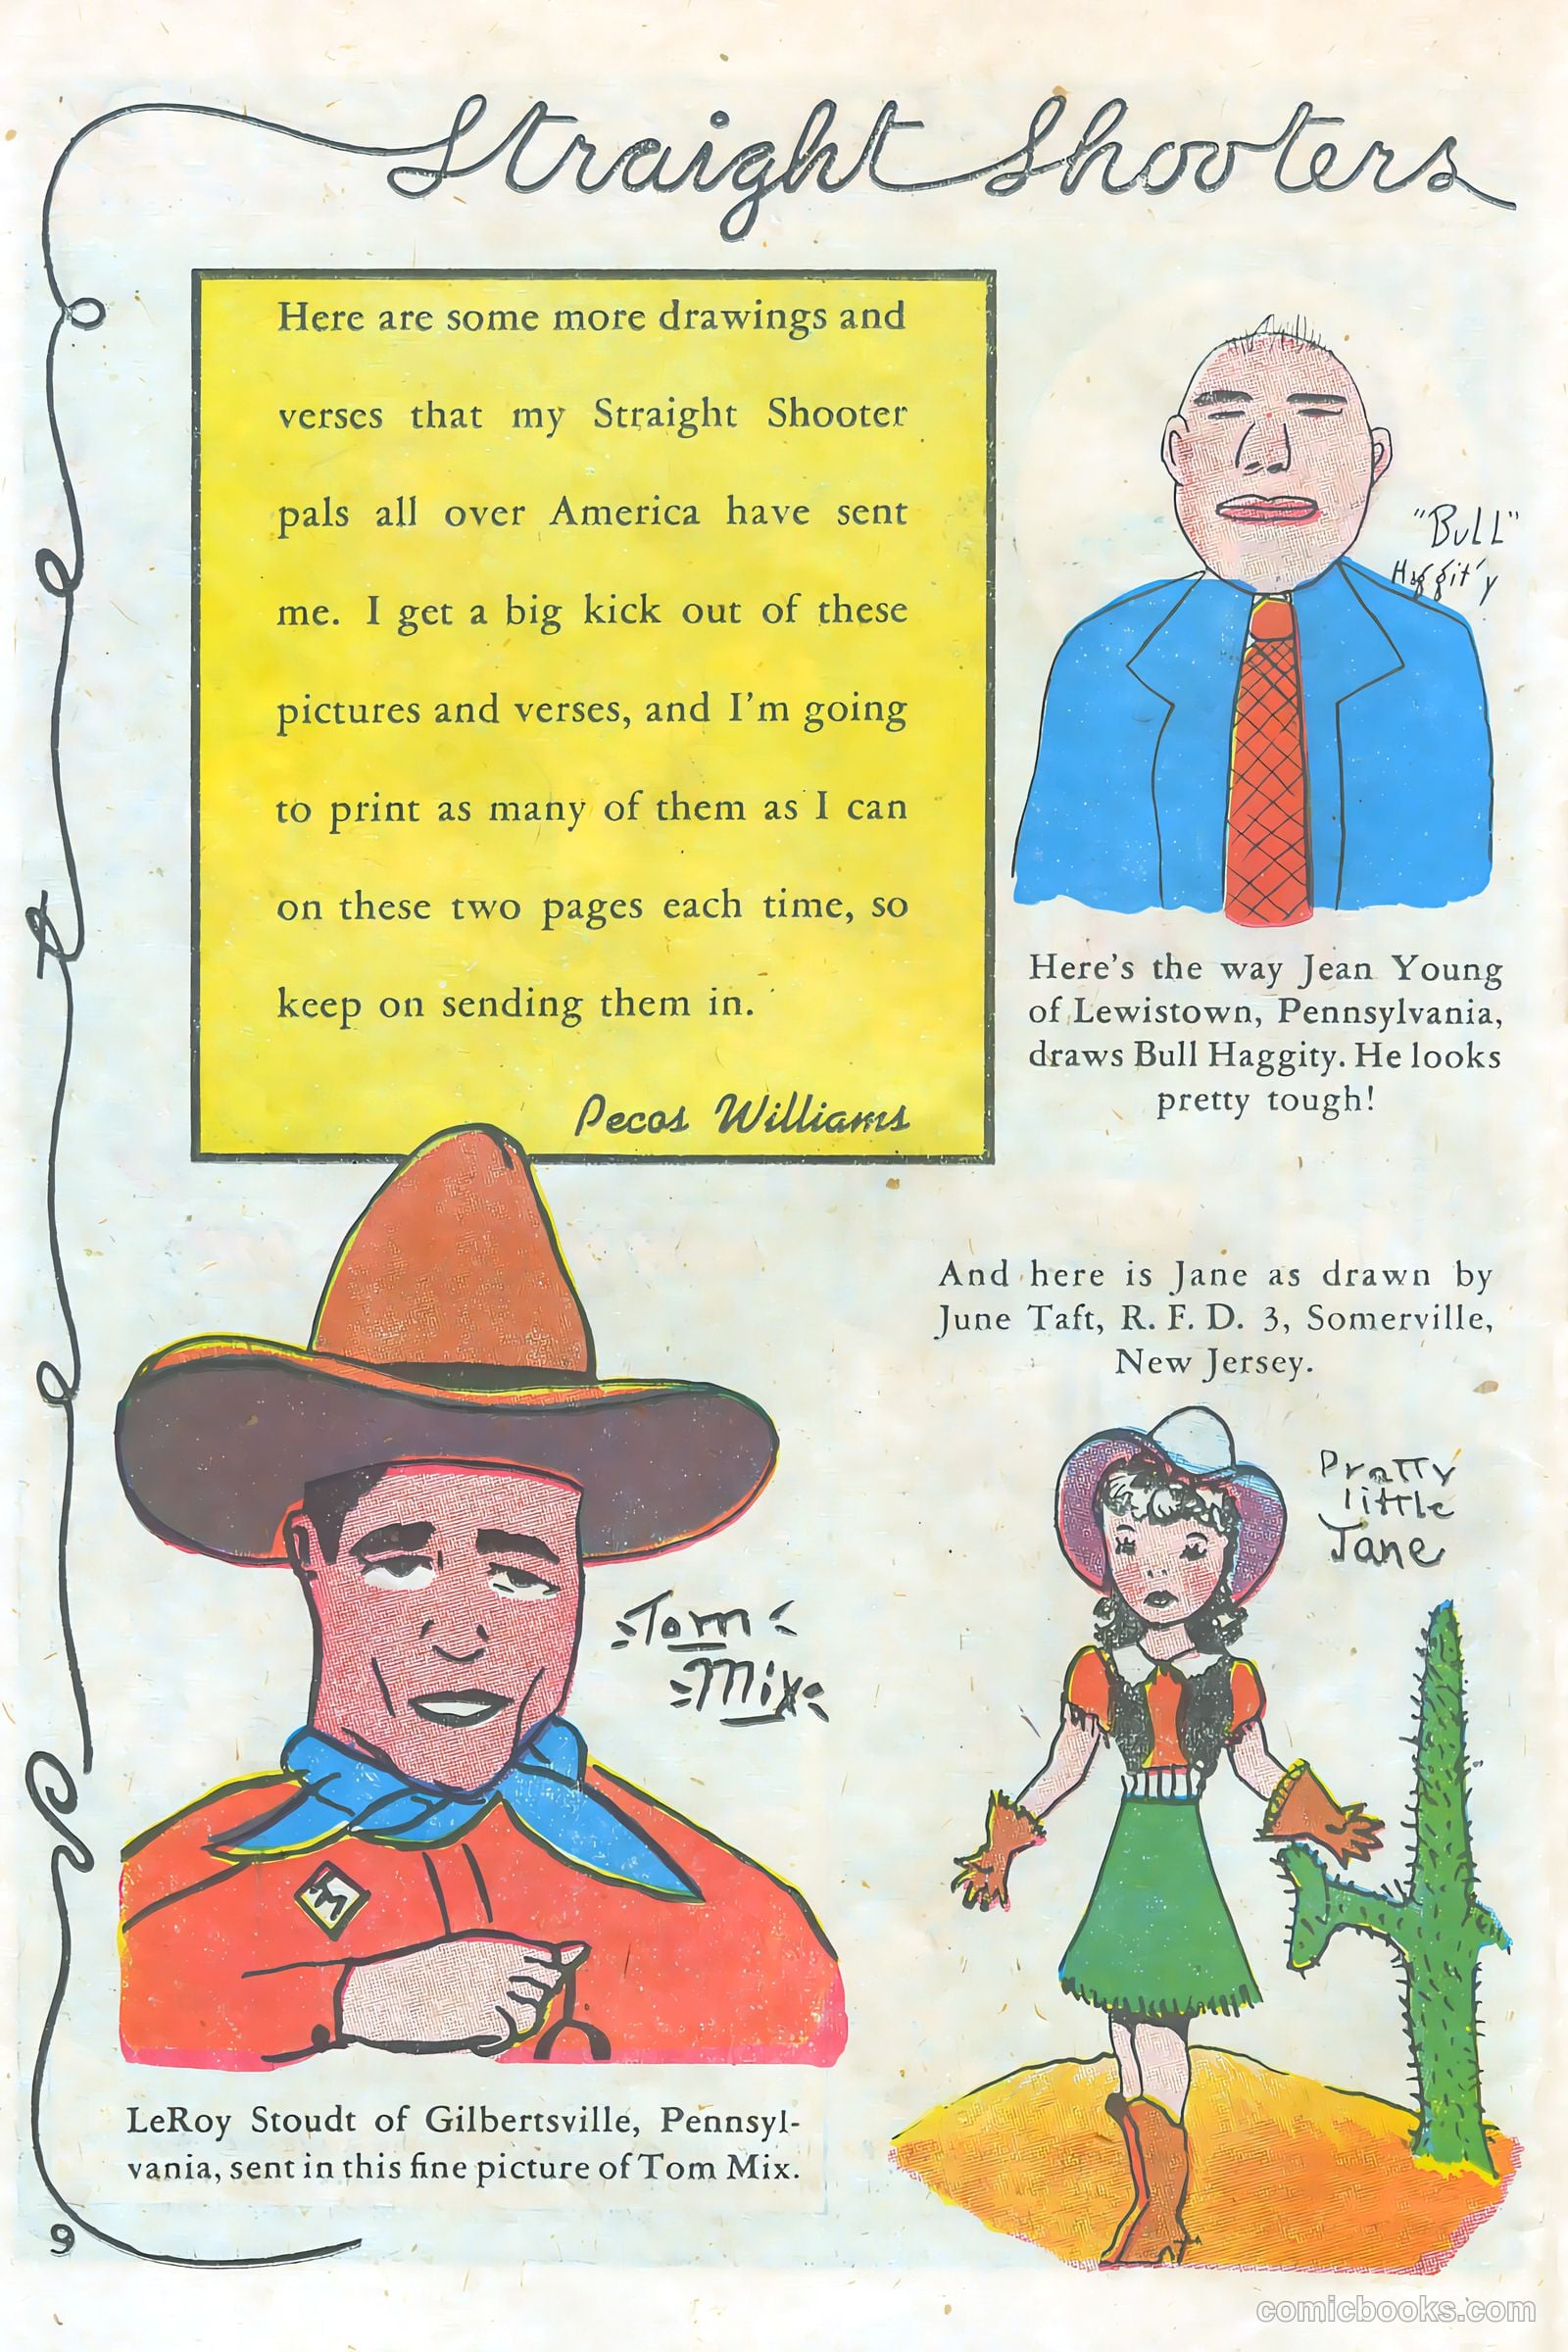 Straight Shooters
Here are some more drawings and
verses that my Straight Shooter
pals all over America have sent
me. I get a big kick out of these
pictures and verses, and I'm going
to print as many of them as I can
on these two pages each time, so
keep on sending them in.
Pecos Williams
"BULL"
Haggit'y
Here's the way Jean Young
of Lewistown, Pennsylvania,
draws Bull Haggity. He looks
pretty tough!
And here is Jane as drawn by
June Taft, R. F. D. 3, Somerville,
New Jersey.
Pratty
little
Jane
Tom
Mix
TM
LeRoy Stoudt of Gilbertsville, Pennsyl-
vania, sent in this fine picture of Tom Mix.
9
comicbooks.com